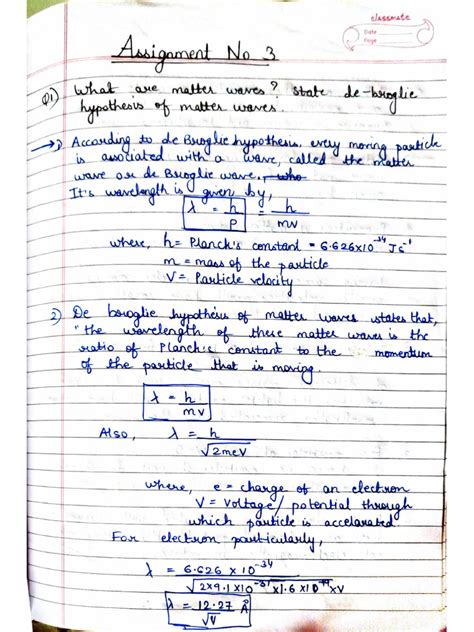 classmate
Date
Page
Assignment No 3
Q1) What are matter waves? State de-broglie
hypothesis of matter waves.
→ 1) According to de Broglie hypothesis, every moving particle
is associated with a wave, called the matter
wave or de Broglie wave.
It's wavelength is given by,
λ = h/p = h/mv
where, h = Planck's constant = 6.626x10^-34 Js^-1
m = mass of the particle
V = Particle velocity
2) De broglie hypothesis of matter waves states that,
"the wavelength of these matter waves is the
ratio of Planck's constant to the momentum
of the particle that is moving.
λ = h/mv
Also, λ = h/√2meV
where, e = charge of an electron
V = Voltage/ potential through
which particle is accelarated
For electron particularly,
λ = 6.626 x 10^-34/√2x9.1x10^-31x1.6x10^-19xV
λ = 12.27/√V Å